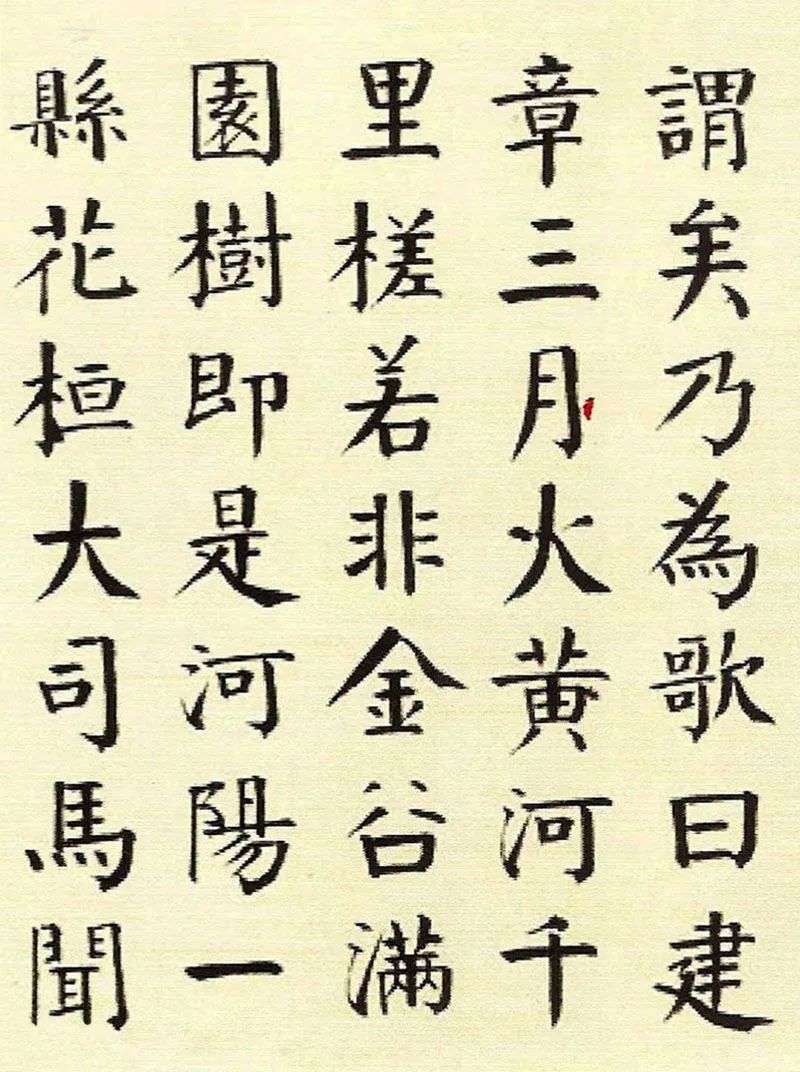 謂矣乃為歌曰建
章三月火黃河千
里槎若非金谷滿
園樹即是河陽一
縣花桓大司馬聞